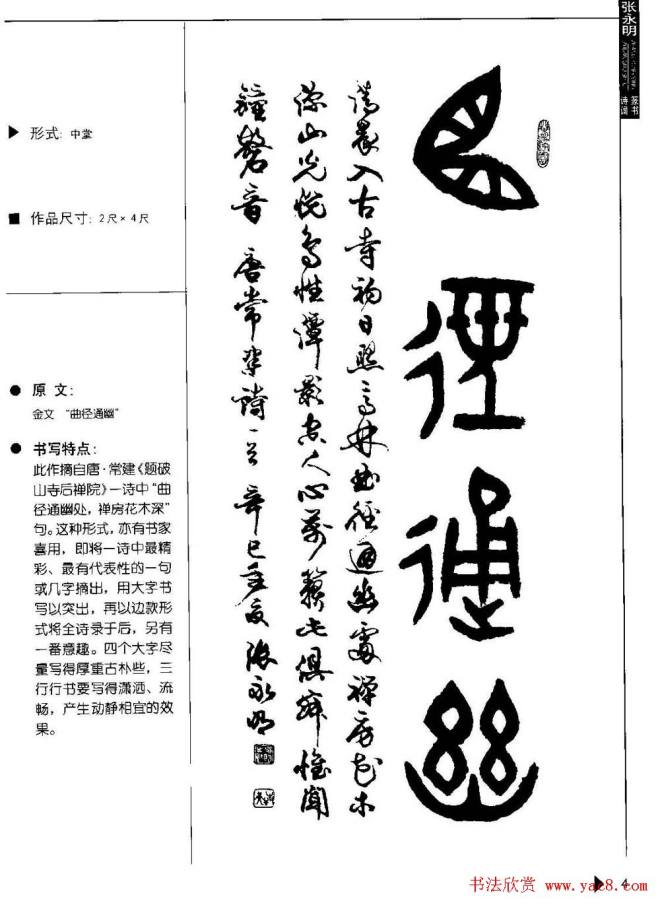 张永明
篆书
诗词
形式: 中堂
作品尺寸: 2尺×4尺
原文:
金文 “曲径通幽”
书写特点:
此作摘自唐·常建《题破
山寺后禅院》一诗中“曲
径通幽处，禅房花木深”
句。这种形式，亦有书家
喜用，即将一诗中最精
彩、最有代表性的一句
或几字摘出，用大字书
写以突出，再以边款形
式将全诗录于后，另有
一番意趣。四个大字尽
量写得厚重古朴些，三
行行书要写得潇洒、流
畅，产生动静相宜的效
果。
曲径通幽
清晨入古寺初日照高林曲径通幽处禅房花木
深山光悦鸟性潭影空人心万籁此俱寂惟闻
钟磬音 唐常建诗一首 辛巳年夏 张永明
4
书法欣赏 www.yac8.com